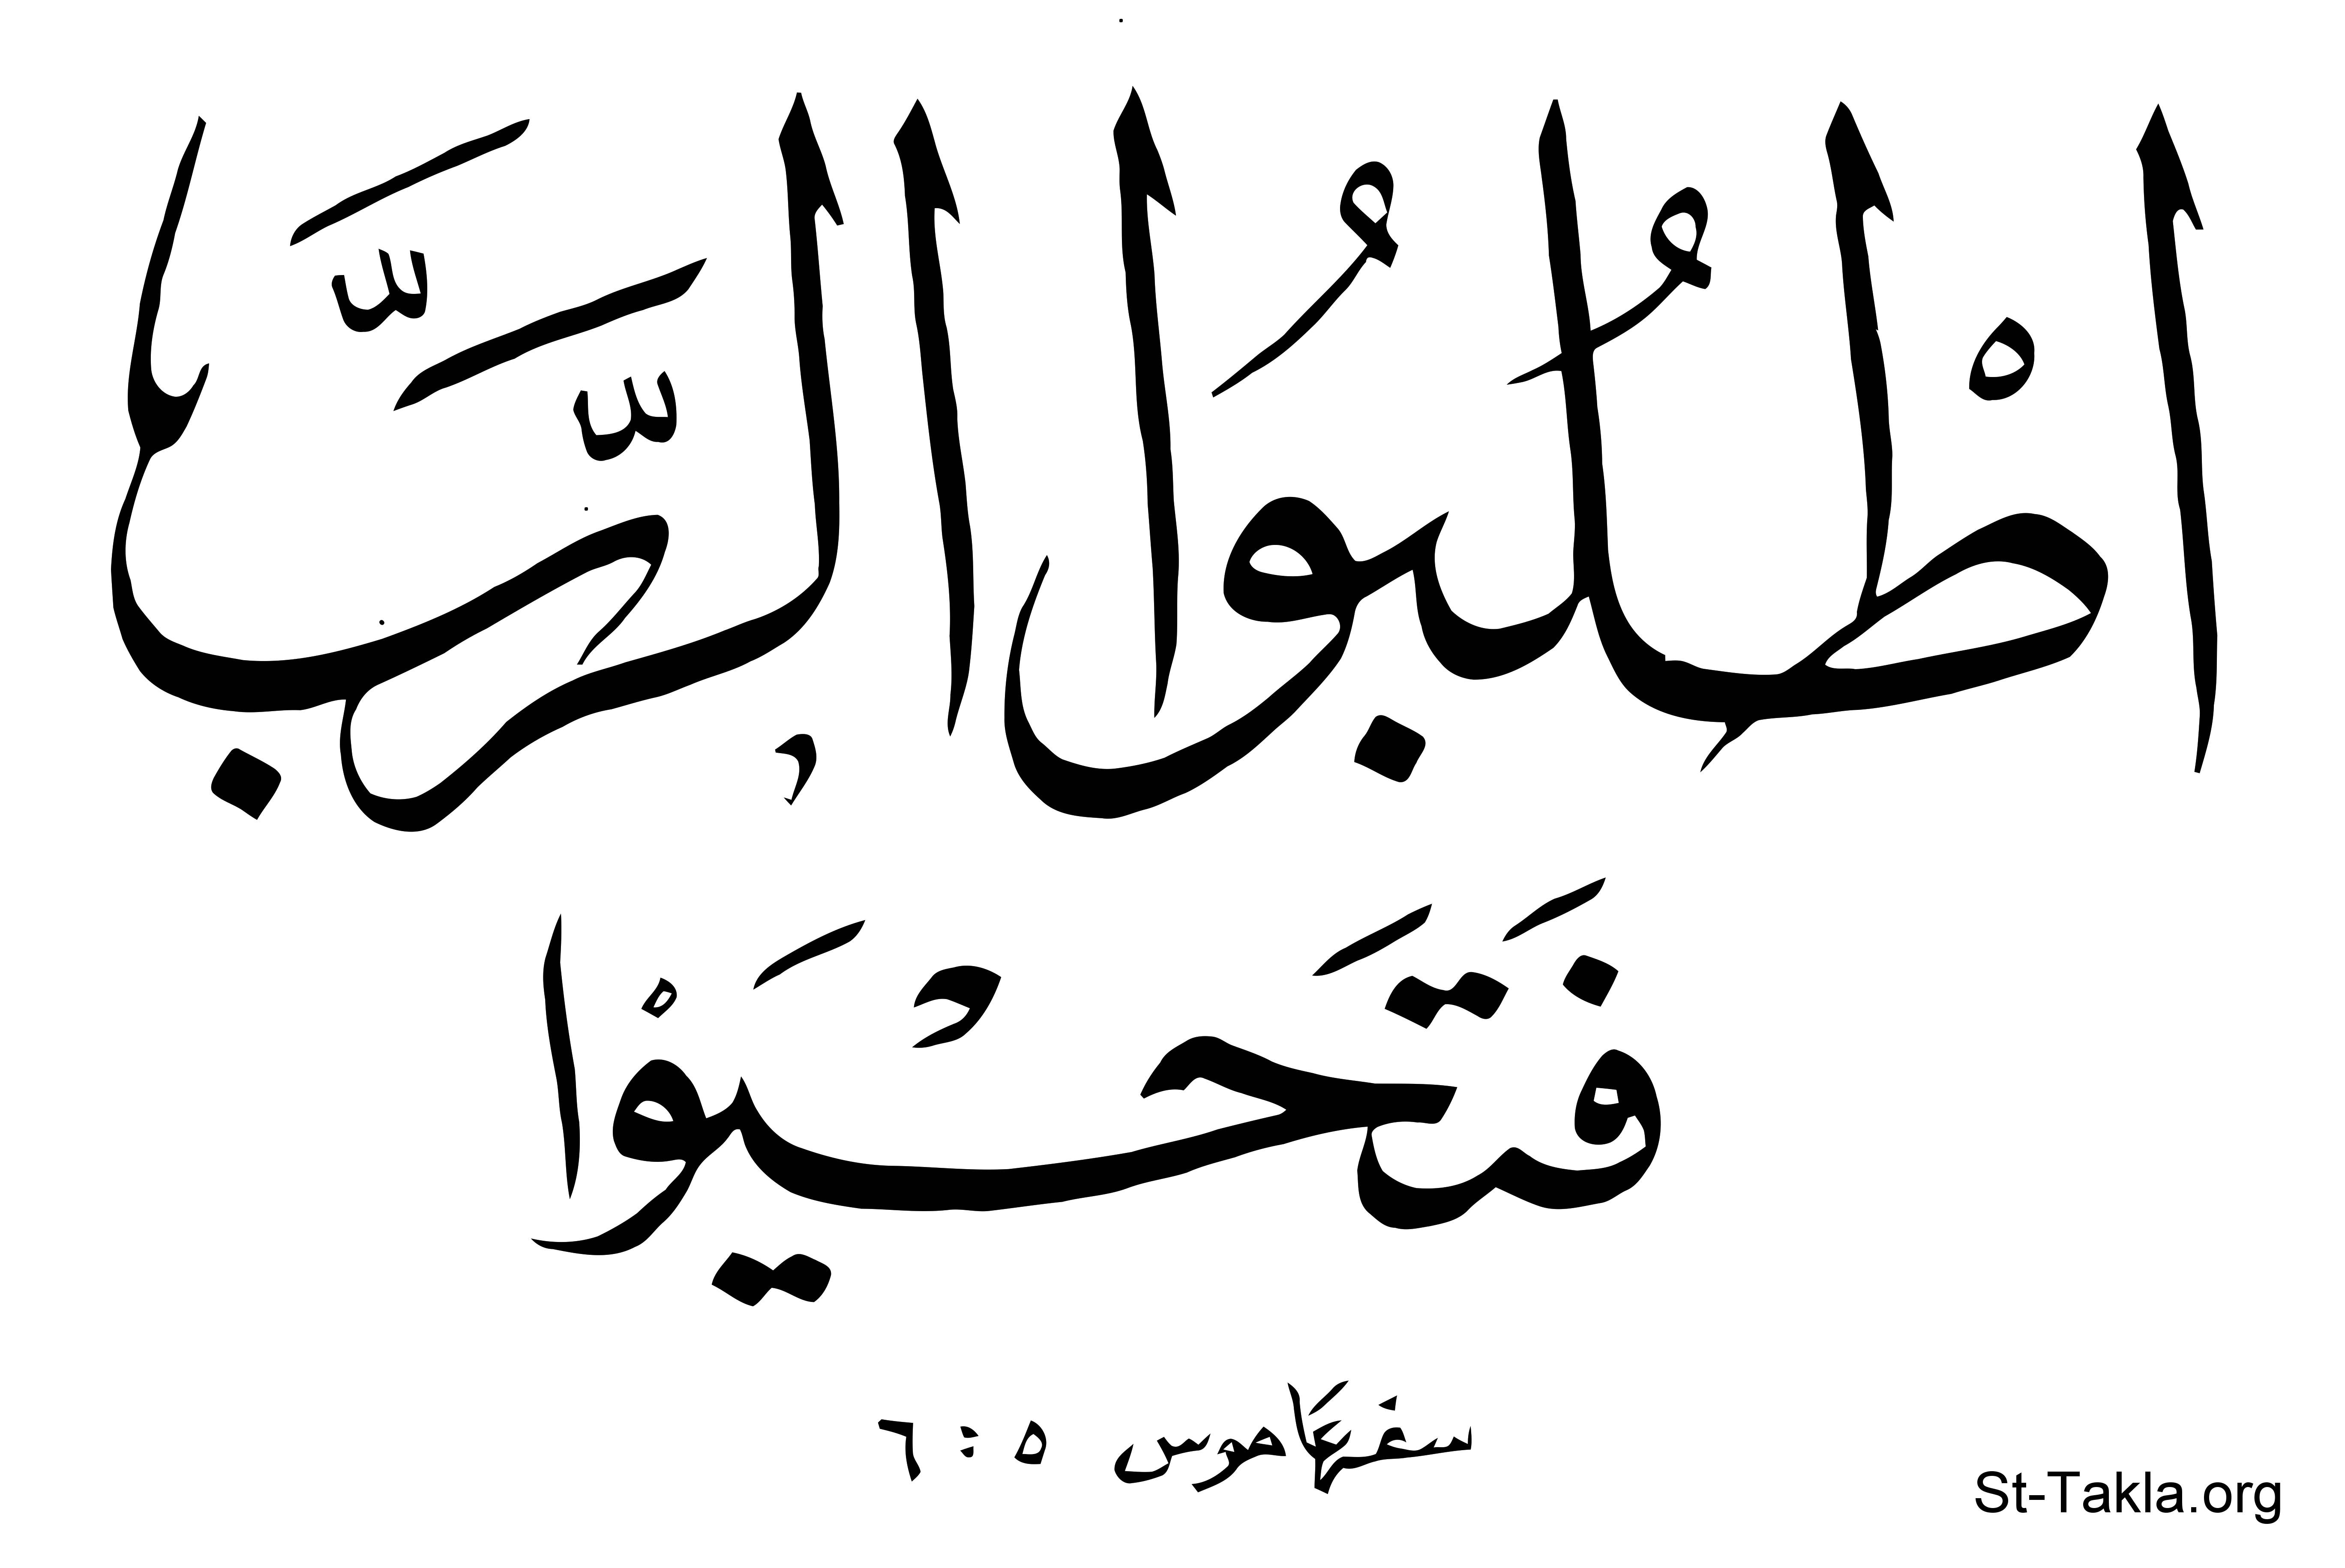 اطْلُبُوا الرَّبَّ
فَتَحْيَوْا
سفر عَاموس ٥ : ٦
St-Takla.org